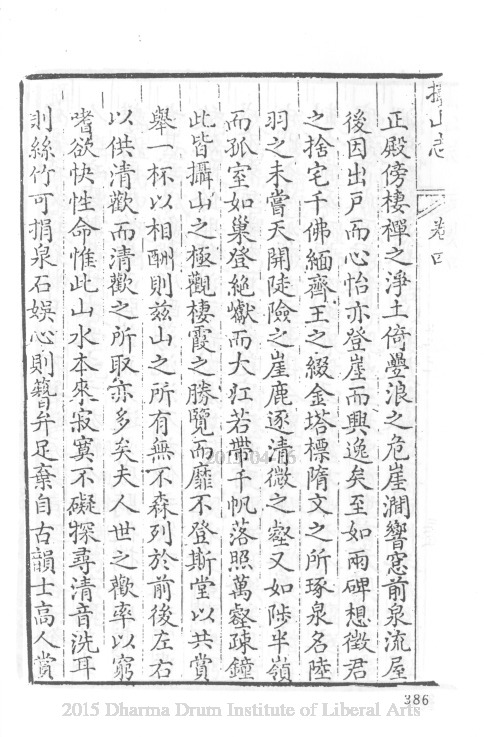 攝山志　卷四
正殿傍棲禪之淨土倚疊浪之危崖澗響窓前泉流屋
後因出戶而心怡亦登崖而興逸矣至如兩碑想徵君
之捨宅千佛緬齊王之綴金塔標隋文之所琢泉名陸
羽之未嘗天開陡險之崖鹿逐清微之壑又如陟半嶺
而孤室如巢登絶巘而大江若帶千帆落照萬壑疎鐘
此皆攝山之極觀棲霞之勝覽而靡不登斯堂以共賞
舉一杯以相酬則茲山之所有無不森列於前後左右
以供清歡而清歡之所取亦多矣夫人世之歡率以窮
嗜欲快性命惟此山水本來寂寞不礙探尋清音洗耳
則絲竹可捐泉石娛心則簪弁足棄自古韻士高人賞
386
2015 Dharma Drum Institute of Liberal Arts